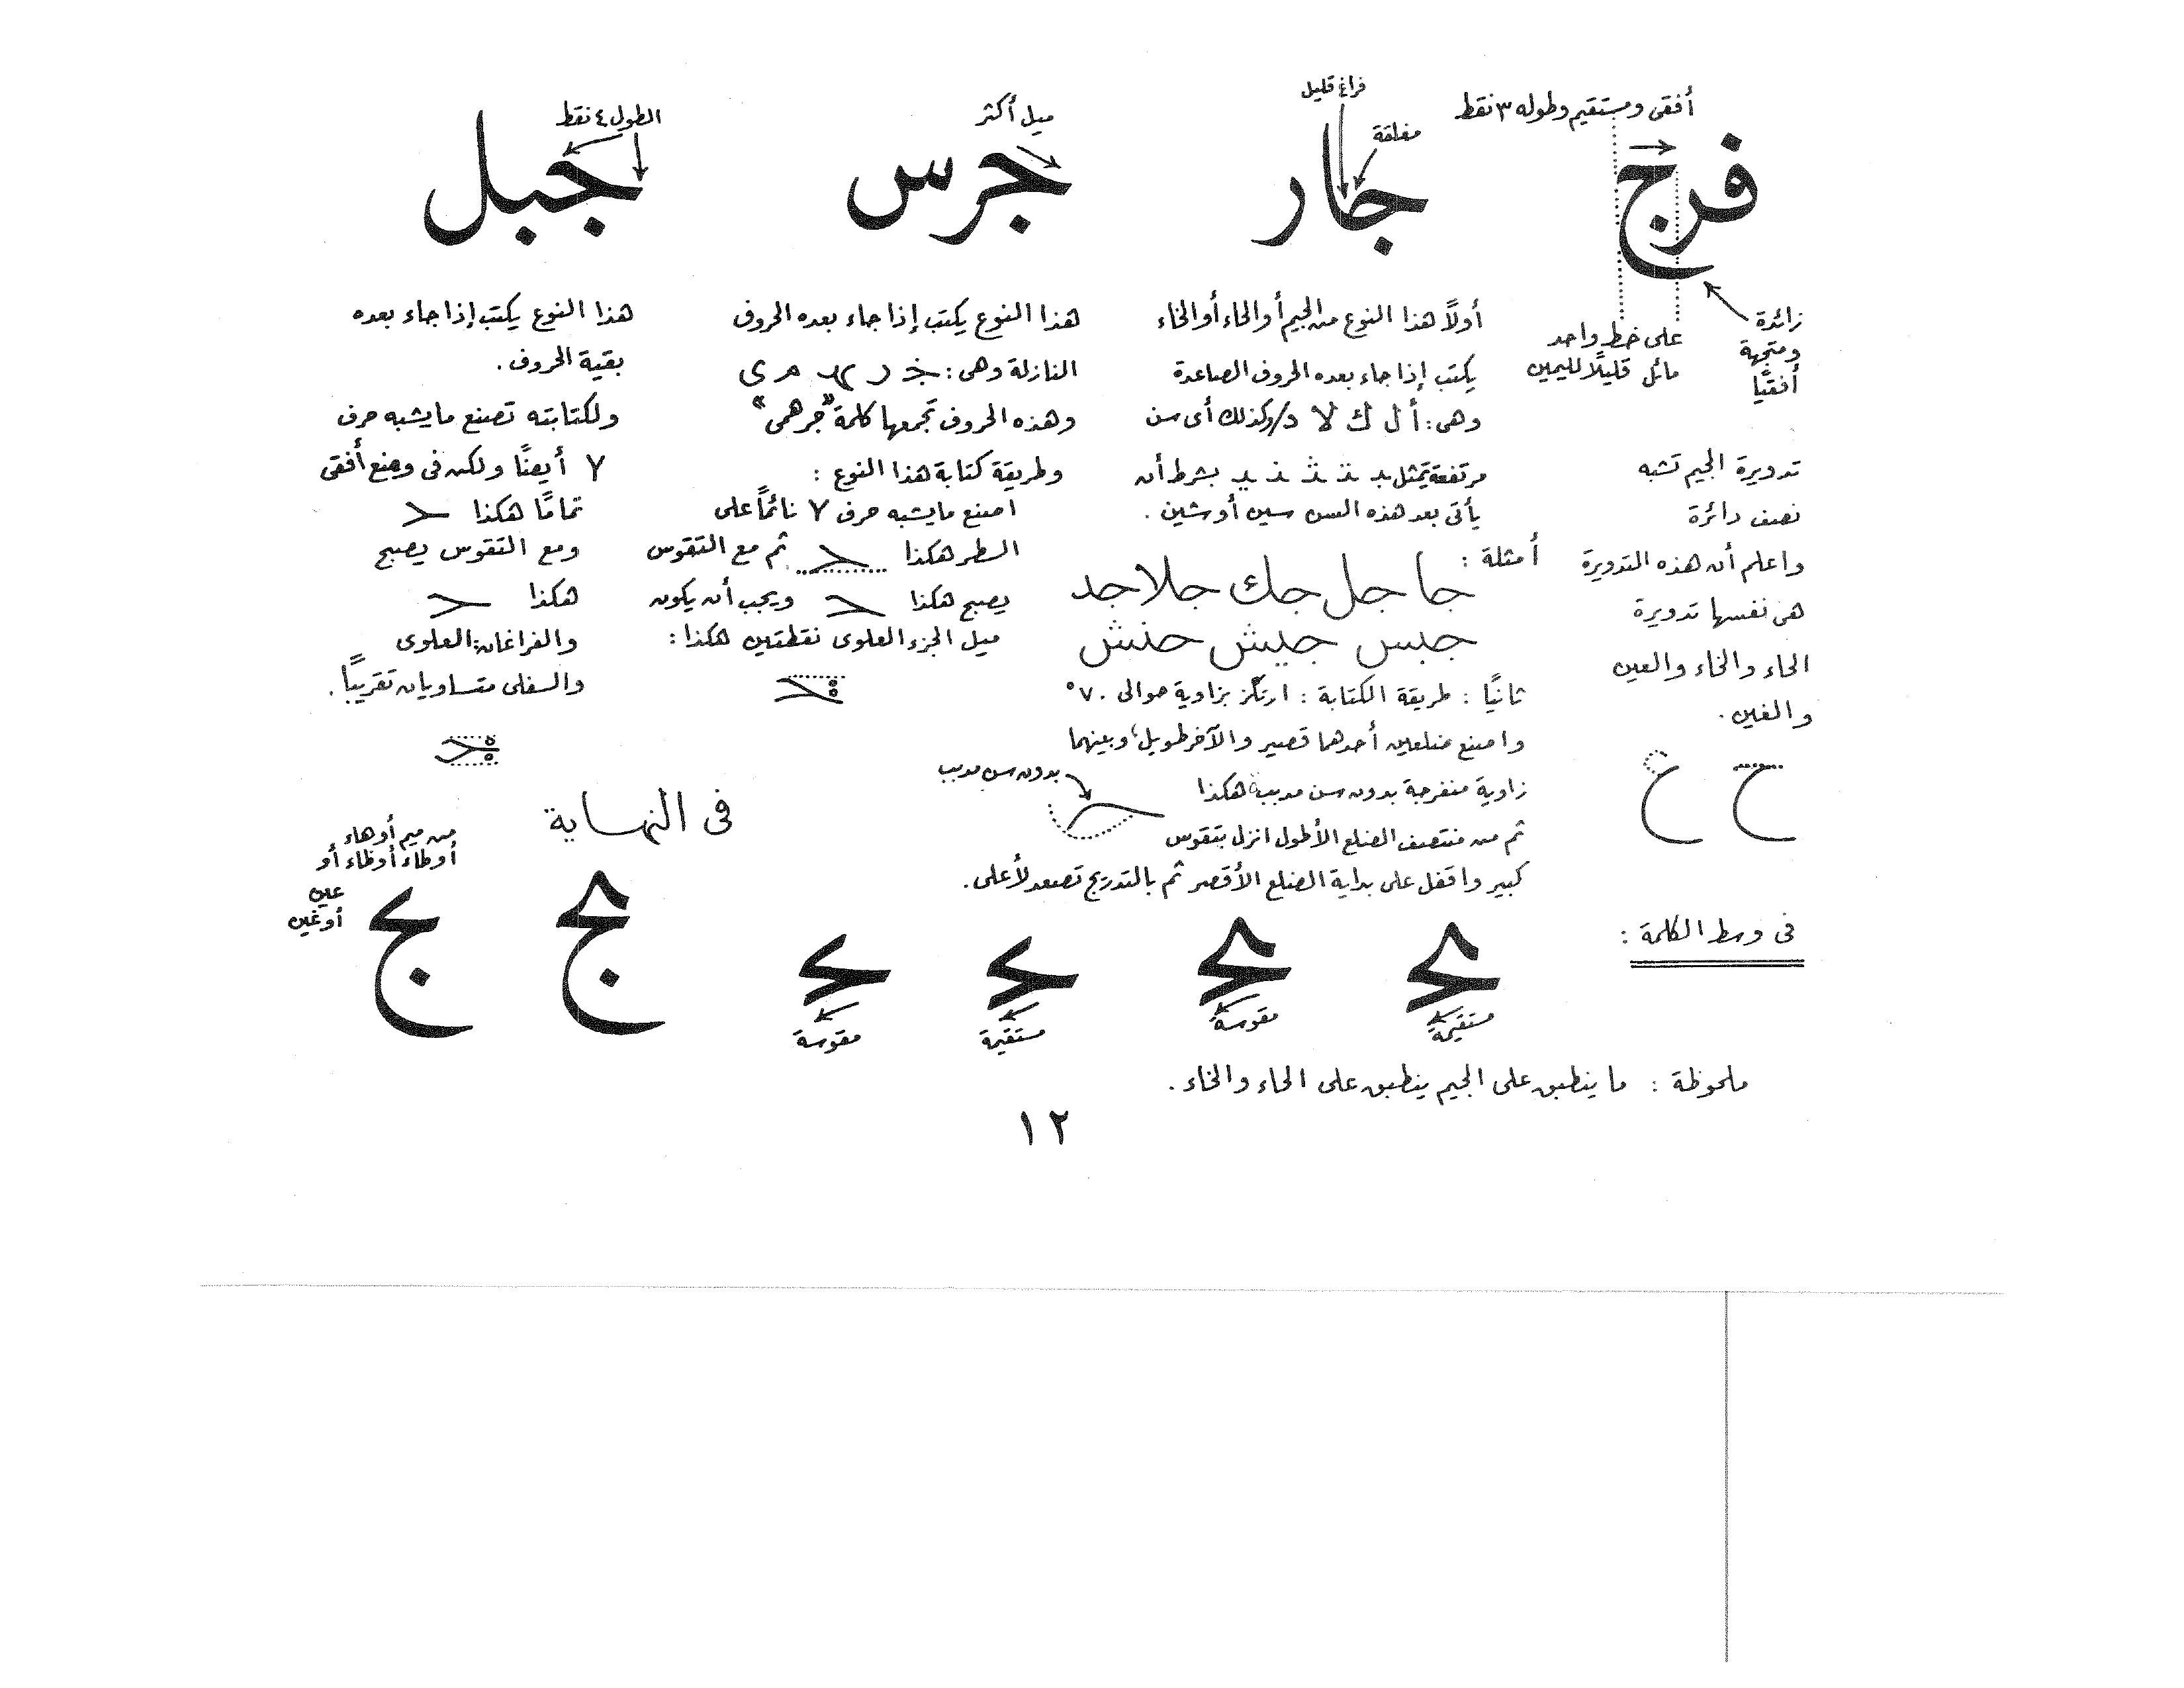 أفقى ومستقيم وطوله ٣ نقط
فرج
زائدة
ومتجهة
أفقيًا
على خط واحد
مائل قليلًا لليمين
تدويرة الجيم تشبه
نصف دائرة
واعلم أن هذه التدويرة
هى نفسها تدويرة
الحاء والخاء والعين
والغين .
فراغ قليل
مغلقة
جار
أولاً هذا النوع من الجيم أو الحاء أو الخاء
يكتب إذا جاء بعده الحروف الصاعدة
وهى : أ ل ك لا د / وكذلك أى سن
مرتفعة تمثل بـ تـ ثـ نـ يـ بشرط أن
يأتى بعد هذه السن سين أو شين .
أمثلة :
جا جل جك جلا جد
جبس جيش حنش
ثانيًا : طريقة الكتابة : ارتكز بزاوية حوالى ٧٠°
واصنع ضلعين أحدهما قصير والآخر طويل، وبينهما
زاوية منفرجة بدون سن مدببة هكذا
بدون سن مدبب
ثم من منتصف الضلع الأطول انزل بتقوس
كبير واقفل على بداية الضلع الأقصر ثم بالتدريج تصعد لأعلى .
ميل أكثر
جرس
هذا النوع يكتب إذا جاء بعده الحروف
النازلة وهى : خـ ر ـهـ م ى
وهذه الحروف تجمعها كلمة "جرهمى"
وطريقة كتابة هذا النوع :
اصنع مايشبه حرف ٧ نائمًا على
السطر هكذا ثم مع التقوس
يصبح هكذا ويجب أن يكون
ميل الجزء العلوى نقطتين هكذا :
الطول ٤ نقط
جبل
هذا النوع يكتب إذا جاء بعده
بقية الحروف .
ولكتابته تصنع مايشبه حرف
٧ أيضًا ولكن فى وضع أفقى
تمامًا هكذا
ومع التقوس يصبح
هكذا
والفراغان : العلوى
والسفلى متساويان تقريبًا .
ح ح
فى وسط الكلمة :
مستقيمة
مقوسة
مستقيمة
مقوسة
فى النهاية
من ميم أو هاء
أو طاء أو ظاء أو
عين
أو غين
ج ج
ملحوظة : ما ينطبق على الجيم ينطبق على الحاء والخاء .
١٢